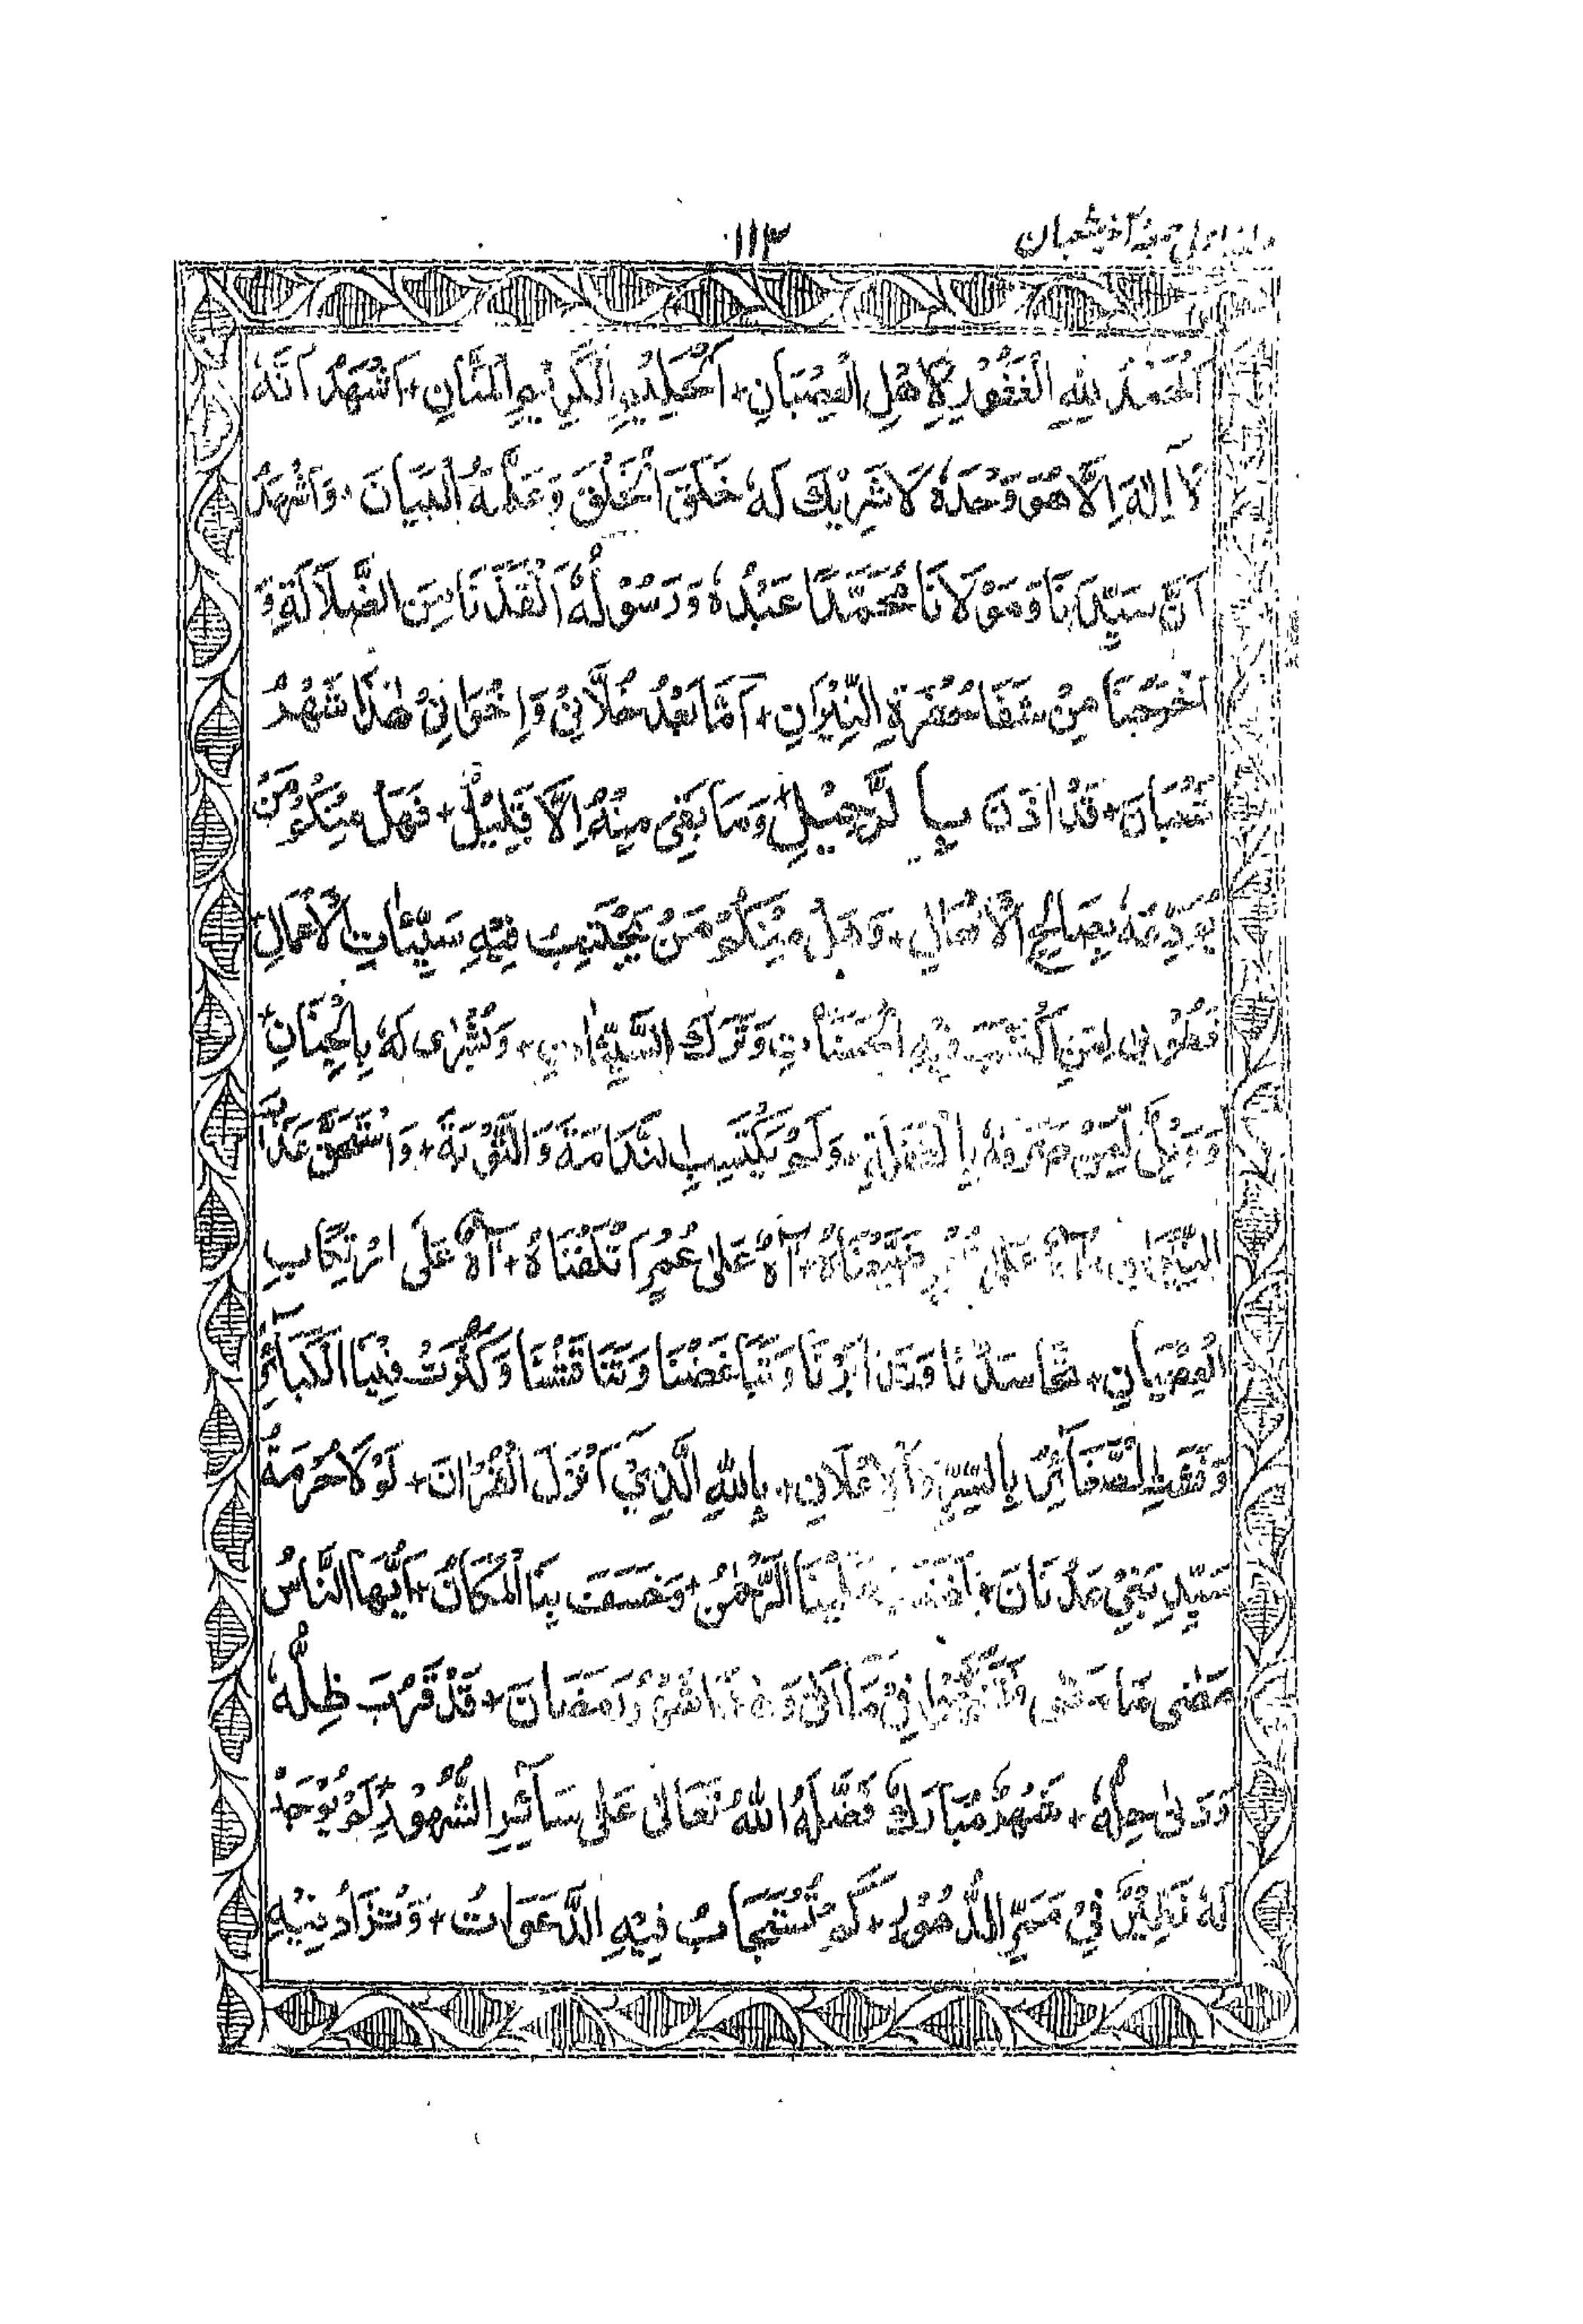 ۱۱۳
آخر شعبان
اَلْحَمْدُ لِلّٰهِ الْغَفُوْرِ لِاَهْلِ الْعِصْيَانِ + اَلْحَلِيْمِ الْكَرِيْمِ الْمَنَّانِ + اَشْهَدُ اَنَّهٗ
لَاۤ اِلٰهَ اِلَّا هُوَ وَحْدَهٗ لَا شَرِيْكَ لَهٗ خَلَقَ الْخَلْقَ وَعَلَّمَهُ الْبَيَانَ + وَاَشْهَدُ
اَنَّ سَيِّدَنَا وَمَوْلَانَا مُحَمَّدًا عَبْدُهٗ وَرَسُوْلُهٗ اَنْقَذَنَا مِنَ الضَّلَالَةِ وَ
اَخْرَجَنَا مِنْ شَفَا حُفْرَةِ النِّيْرَانِ + اَمَّا بَعْدُ خُلَّانِيْ وَاِخْوَانِيْ هٰذَا شَهْرُ
شَعْبَانَ + قَدْ اٰذَنَ بِالرَّحِيْلِ وَمَا بَقِيَ مِنْهُ اِلَّا قَلِيْلٌ + فَهَلْ مِنْكُمْ مَنْ
يُوَدِّعُهٗ بِصَالِحِ الْاَفْعَالِ + وَهَلْ مِنْكُمْ مَنْ يَجْتَنِبُ فِيْهِ سَيِّئَاتِ الْاَعْمَالِ
فَطُوْبٰى لِمَنِ اكْتَسَبَ فِيْهِ الْحَسَنَاتِ وَتَرَكَ السَّيِّاٰتِ + وَبُشْرٰى لَهٗ بِالْجِنَانِ +
وَوَيْلٌ لِّمَنْ صَرَفَهٗ بِالْغَفْلَةِ + وَلَمْ يَكْتَسِبِ النَّدَامَةَ وَالتَّوْبَةَ + وَاسْتَحَقَّ عَذَابَ
النِّيْرَانِ + اٰهٌ عَلٰى ضَيَّعْنَاهُ + اٰهٌ عَلٰى عُمُرٍ اَتْلَفْنَاهُ + اٰهٌ عَلَى ارْتِكَابِ
الْعِصْيَانِ + تَحَاسَدْنَا وَتَدَابَرْنَا وَتَبَاغَضْنَا وَتَنَاقَشْنَا وَكَثُرَتْ فِيْنَا الْكَبَآئِرُ
الصَّغَآئِرُ بِالسِّرِّ وَالْاِعْلَانِ + بِاللّٰهِ الَّذِيْۤ اَنْزَلَ الْقُرْاٰنَ + لَوْلَا حُرْمَةُ
سَيِّدِ بَنِيْ عَدْنَانَ + عَلَيْنَا الرَّحْمٰنُ + وَخَسَفَ بِنَا الْمَكَانُ + اَيُّهَا النَّاسُ
مَضٰى مَا مَضٰى فِيْ مَا اَتٰى وَهٰذَا شَهْرُ رَمَضَانَ + قَدْ قَرُبَ ظِلُّهٗ
وَدَنٰى حِلُّهٗ + شَهْرٌ مُّبَارَكٌ فَضَّلَهُ اللهُ تَعَالٰى عَلٰى سَآئِرِ الشُّهُوْرِ + لَمْ يُوْجَدْ
لَهٗ نَظِيْرٌ فِيْ مَمَرِّ الدُّهُوْرِ + كَمْ تُسْتَجَابُ فِيْهِ الدَّعَوَاتُ + وَتُزَادُ فِيْهِ